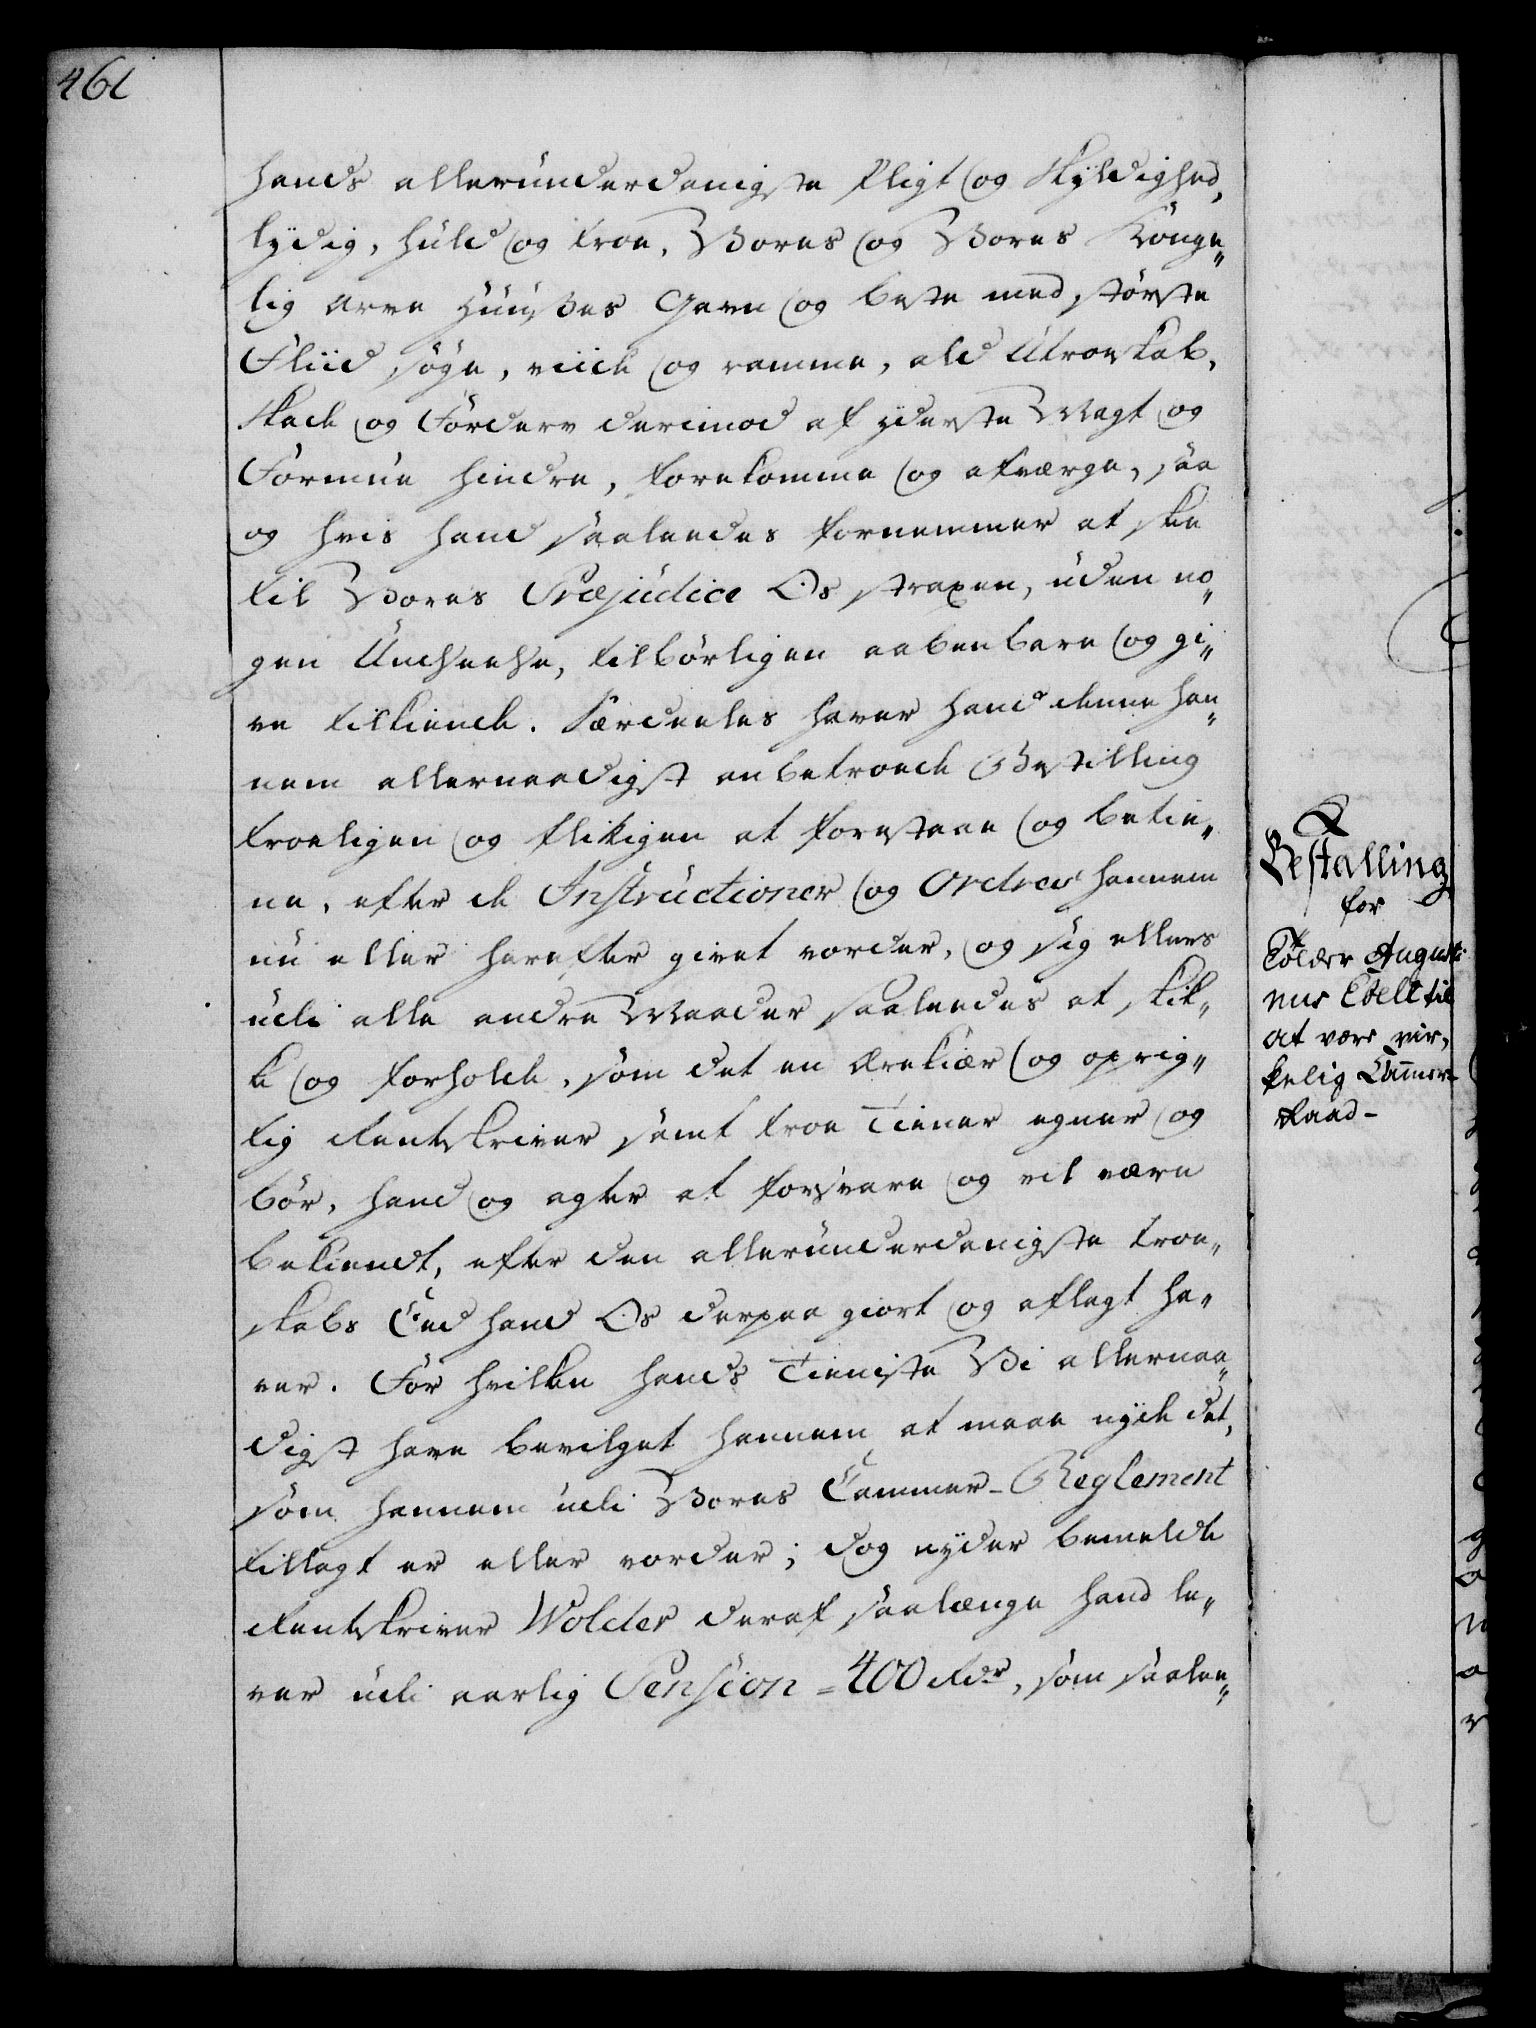 461
hands allerunderdanigste Pligt og Skyldighed,
lydig, huld og troe, Vores og Vores Konge„
lig Arve Huuses Gavn og beste med største
Fliid søge, viide og ramme, ald Utroeskab,
Skade og Forderv derimod af yderste Magt og
Formue hindre, forekomme og afværge, saa
og hvis hand saaledes fornemmer at skee
til Vores Præjudice Os straxen, uden no„
gen Undseelse, tilbørligen aabenbare og gi„
ve tilkiende. Særdeeles haver hand denne han„
nem allernaadigst anbetroede Bestilling
troeligen og flitigen at forestaae og betie„
ne, efter de Instructioner og Ordres hannem
nu eller herefter givet vorder, og sig ellers
udi alle andre Maader saaledes at skik„
ke og forholde, som det en ærekiær og oprig„
tig Rentskriver samt troe Tiener egner og
bør, hand og agter at forsvare og vil være
bekiendt, efter den allerunderdanigste Troe„
skabs Eed hand Os derpaa giort og aflagt ha„
ver. For hvilken hands Tieniste Vi allernaa„
digst have bevilget hannem at maae nyde det,
som hannem udi Vores Cammer-Reglement
tillagt er eller vorder; dog nyder bemeldte
Rentskriver Wolder deraf saalænge hand le„
ver udi aarlig Pension = 400 Rdr, som saalee„
Bestalling
for
Tolder Augusti
nus Edell til
at være vir„
kelig Cammer-
Raad-